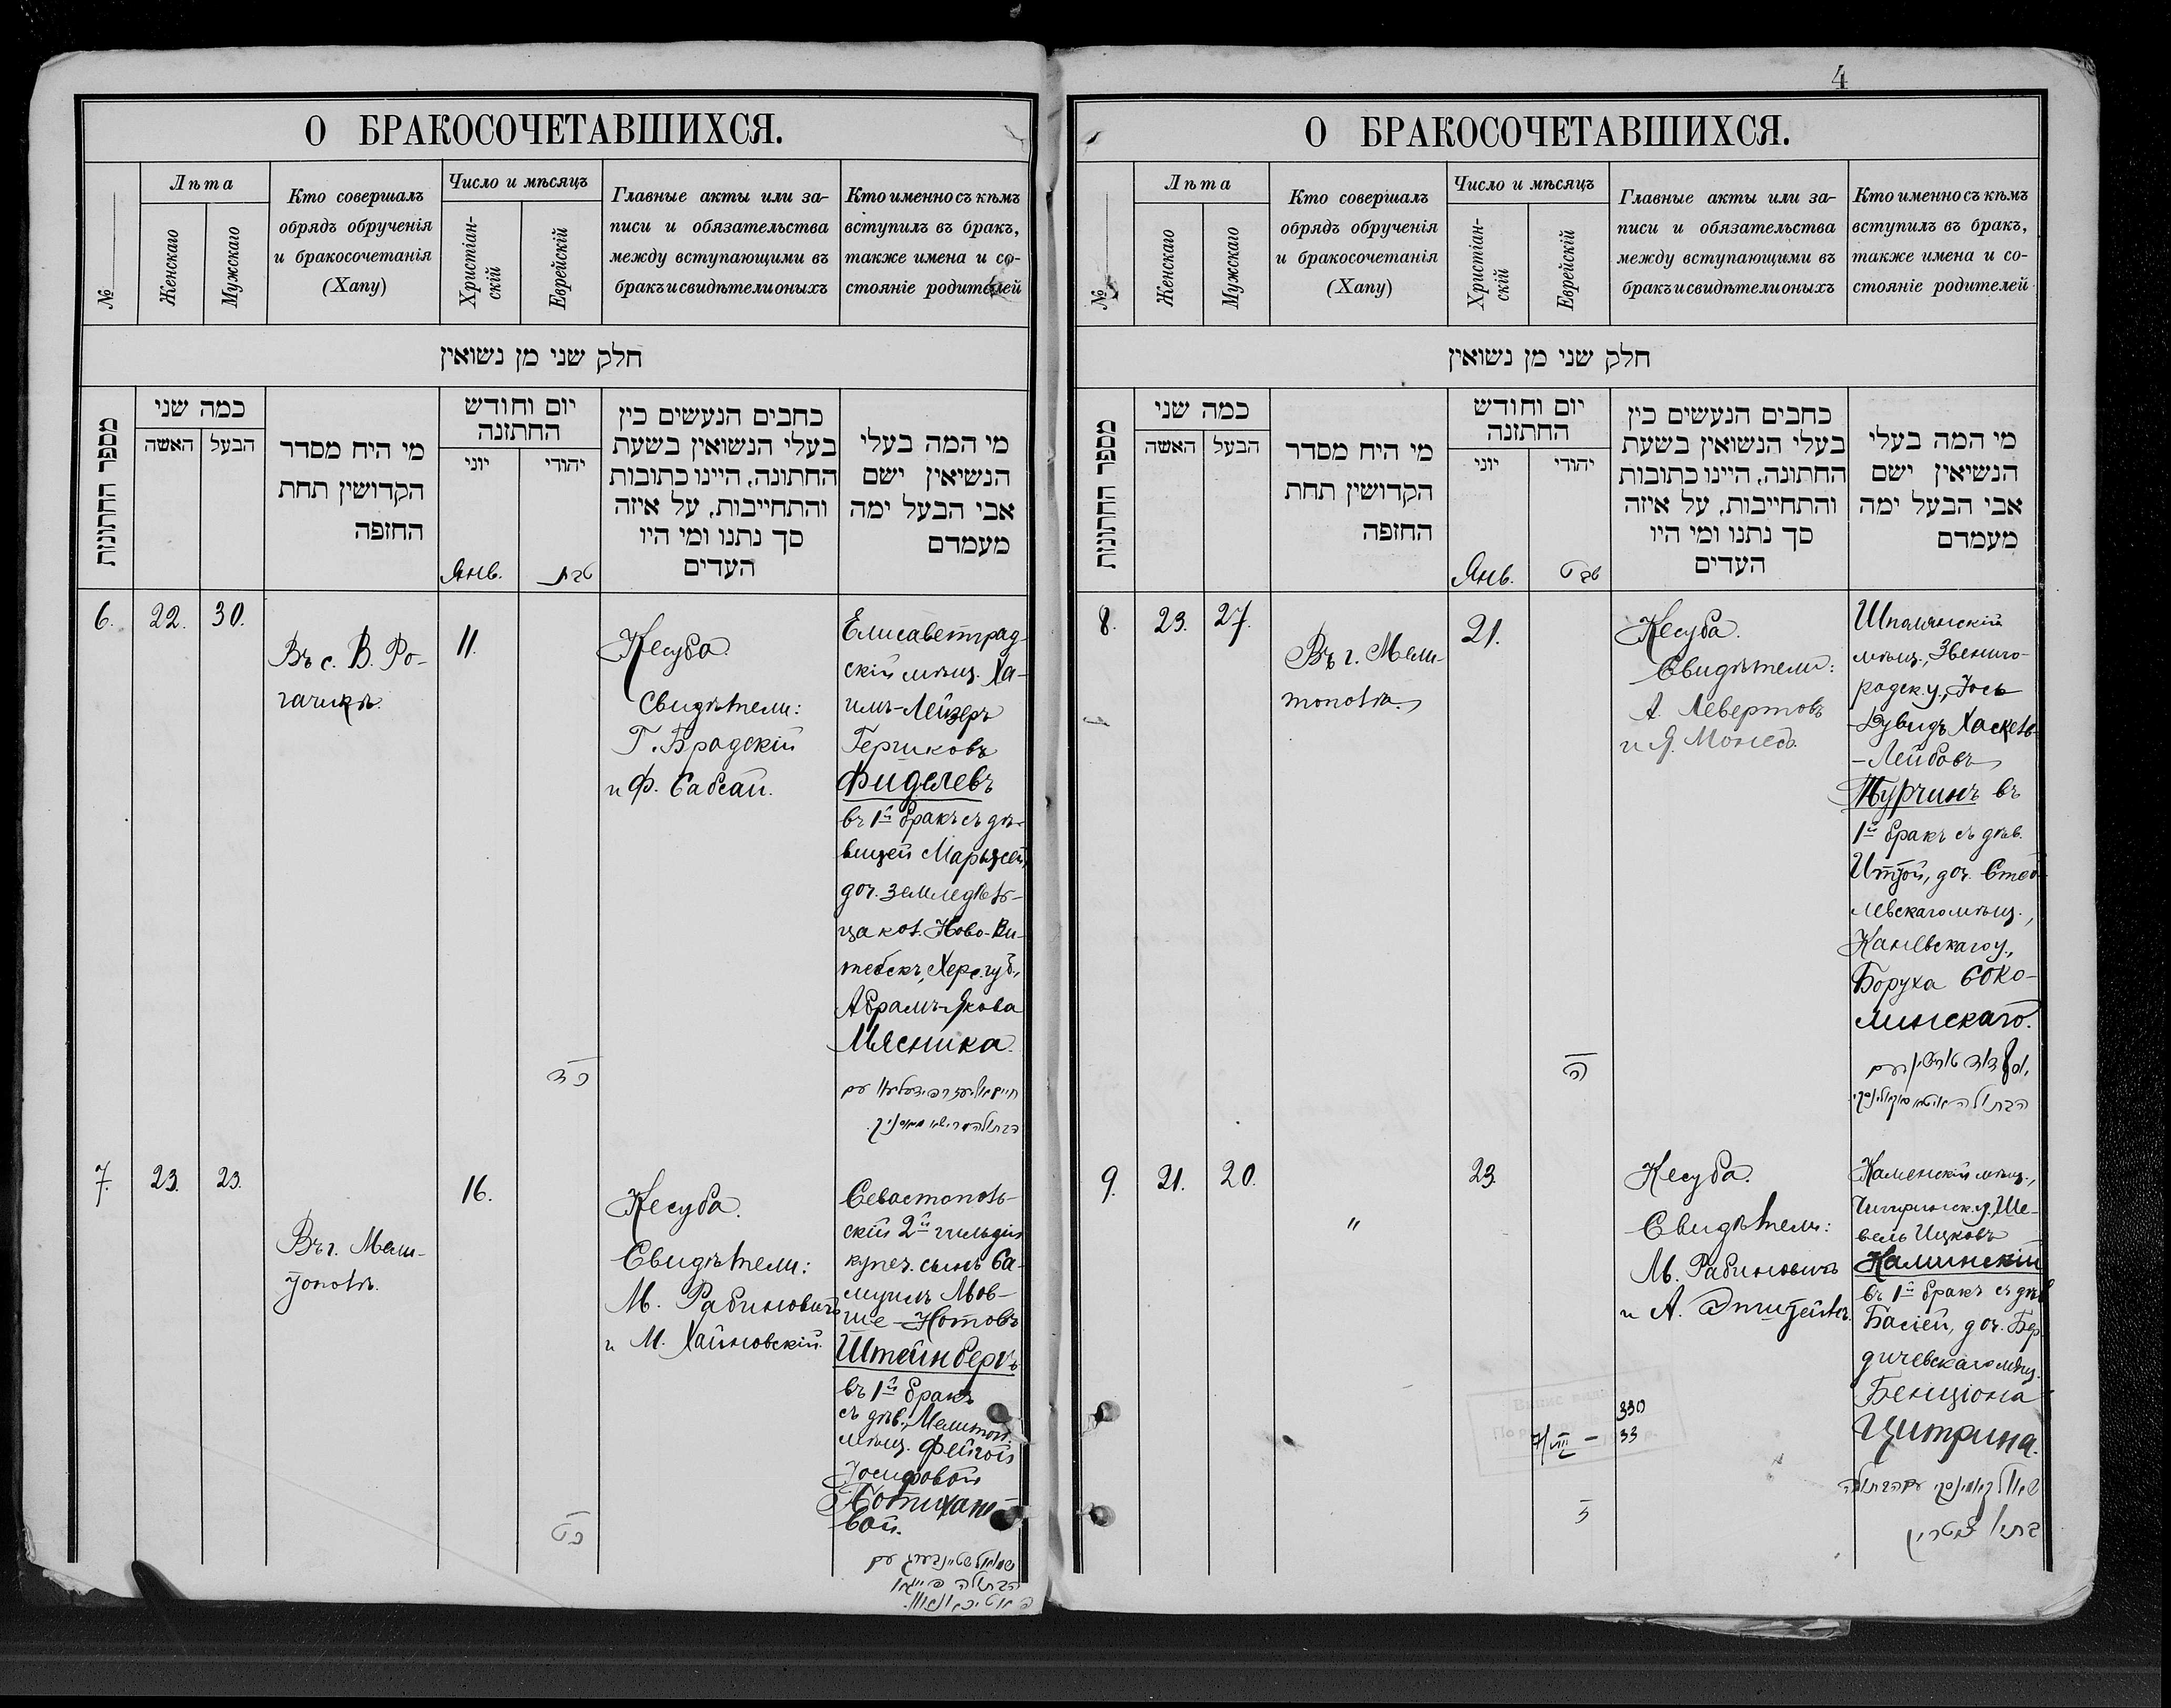 О БРАКОСОЧЕТАВШИХСЯ.
№
Лѣта
Женскаго
Мужскаго
Кто совершалъ
обрядъ обрученія
и бракосочетанія
(Хапу)
Число и мѣсяцъ
Христіан-
скій
Еврейскій
Главные акты или за-
писи и обязательства
между вступающими въ
бракъ и свидѣтели оныхъ
Кто именно съ кѣмъ
вступилъ въ бракъ,
также имена и со-
стояніе родителей
חלק שני מן נשואין
מספר החתונות
כמה שני
האשה
הבעל
מי היח מסדר
הקדושין תחת
החופה
יום וחודש
החתונה
יוני
יהודי
כתבים הנעשים בין
בעלי הנשואין בשעת
החתונה, היינו כתובות
והתחייבות, על איזה
סך נתנו ומי היו
העדים
מי המה בעלי
הנשיאין ישם
אבי הבעל ימה
מעמדם
Янв.
טבת
6.
22.
30.
Въ с. В. Ро-
гачикѣ.
11.
כד
Кесуба
Свидѣтели:
Г. Брадскій
и Ф. Сабсай.
Елисаветград-
скій мѣщ. Ха-
имъ-Лейзеръ
Гершковъ
Фиделевъ
въ 1й бракъ съ дѣ-
вицей Марьясей,
доч. земледѣль-
ца кол. Ново-Ви-
тебскъ, Херс. губ.,
Абрамъ-Якова
Мясника.
7.
23.
23.
Въ г. Мели-
тополѣ.
16.
כט
Кесуба.
Свидѣтели:
М. Рабиновичъ
и М. Хайновскій.
Севастополь-
скій 2й гильдіи
купеч. сынъ Са-
муилъ Мов-
ше-Нотовъ
Штейнбергъ
въ 1й бракъ
съ дѣв., Мелитоп.
мѣщ. Фейгой
Іосифовой
вой.
О БРАКОСОЧЕТАВШИХСЯ.
4
№
Лѣта
Женскаго
Мужскаго
Кто совершалъ
обрядъ обрученія
и бракосочетанія
(Хапу)
Число и мѣсяцъ
Христіан-
скій
Еврейскій
Главные акты или за-
писи и обязательства
между вступающими въ
бракъ и свидѣтели оныхъ
Кто именно съ кѣмъ
вступилъ въ бракъ,
также имена и со-
стояніе родителей
חלק שני מן נשואין
מספר החתונות
כמה שני
האשה
הבעל
מי היח מסדר
הקדושין תחת
החופה
יום וחודש
החתונה
יוני
יהודי
כתבים הנעשים בין
בעלי הנשואין בשעת
החתונה, היינו כתובות
והתחייבות, על איזה
סך נתנו ומי היו
העדים
מי המה בעלי
הנשיאין ישם
אבי הבעל ימה
מעמדם
Янв.
8.
23.
27.
Въ г. Мели-
тополѣ.
21.
Кесуба.
Свидѣтели:
А. Левертовъ
Шполянскій
мѣщ., Звениго-
родск. у., Іось
-Дувидъ Хаскель-
-Лейбовъ
Турчинъ въ
1й бракъ съ дѣв.
Иттой, доч. Стеб-
левскаго мѣщ.,
Каневскаго у.,
Боруха Соко-
линскаго.
9.
21.
20.
"
23.
Кесуба.
Свидѣтели:
М. Рабиновичъ
и А. Эпштейнъ.
330
33
Каменскій мѣщ.,
Чигиринск. у., Ше-
вель Ицковъ
Калминскій
въ 1й бракъ съ дѣв
Басіей, доч. Бер-
дичевскаго мѣщ.
Бенціона
Цитрина.